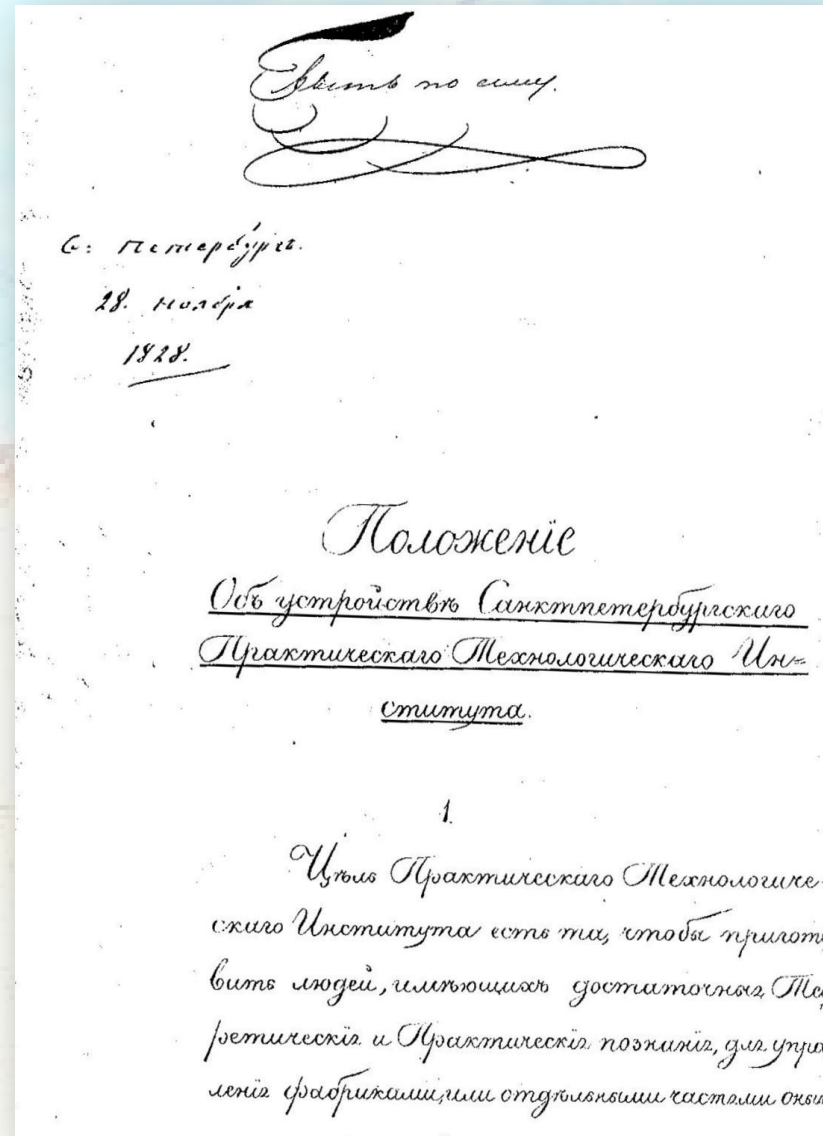 Быть по сему.
С: Петербургъ.
28. ноября
1828.
Положеніе
Объ устройствѣ Санктпетербургскаго
Практическаго Технологическаго Ин=
ститута.
1.
Цѣль Практическаго Технологиче-
скаго Института есть та, чтобы пригото
вить людей, имѣющихъ достаточныя Тео
ретическія и Практическія познанія, для управ
ленія фабриками, или отдѣльными частями оны